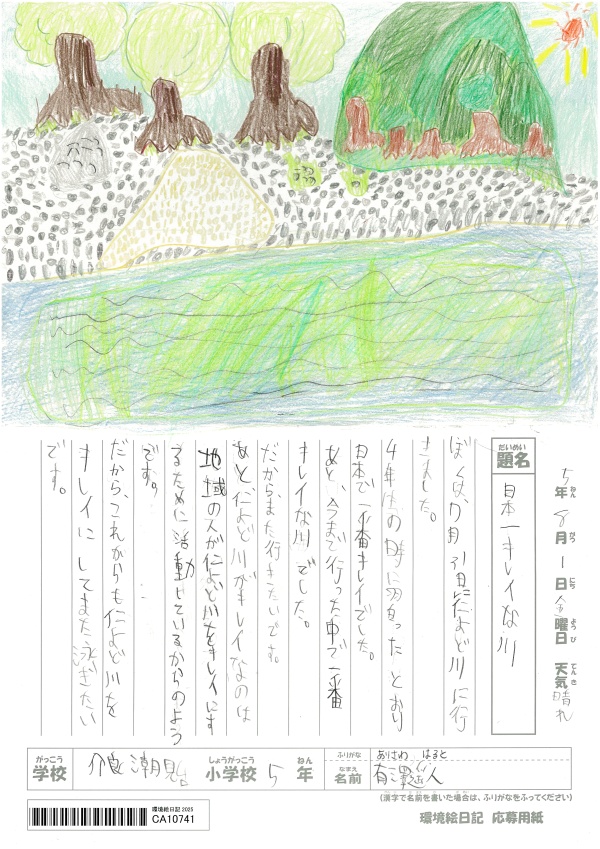 5年 8月 1日 金曜日 天気 晴れ
ねん がつ にち ようび てんき
だいめい
題名
日本一キレイな川
ぼくは、7月31日に仁よど川に行
きました。
4年生の時に習ったとおり
日本で一番キレイでした。
あと、今まで行った中で一番
キレイな川でした。
だからまた行きたいです。
あと、仁よど川がキレイなのは
地域の人が仁よど川をキレイにす
るために活動しているからのよう
です。
だから、これからも仁よど川を
キレイにしてまた泳ぎたい
です。
がっこう
学校
潮見台
しょうがっこう
小学校
5
ねん
年
ふりがな
ありさわ はると
なまえ
名前
有澤 人
(漢字で名前を書いた場合は、ふりがなをふってください)
環境絵日記 2025
CA10741
環境絵日記 応募用紙